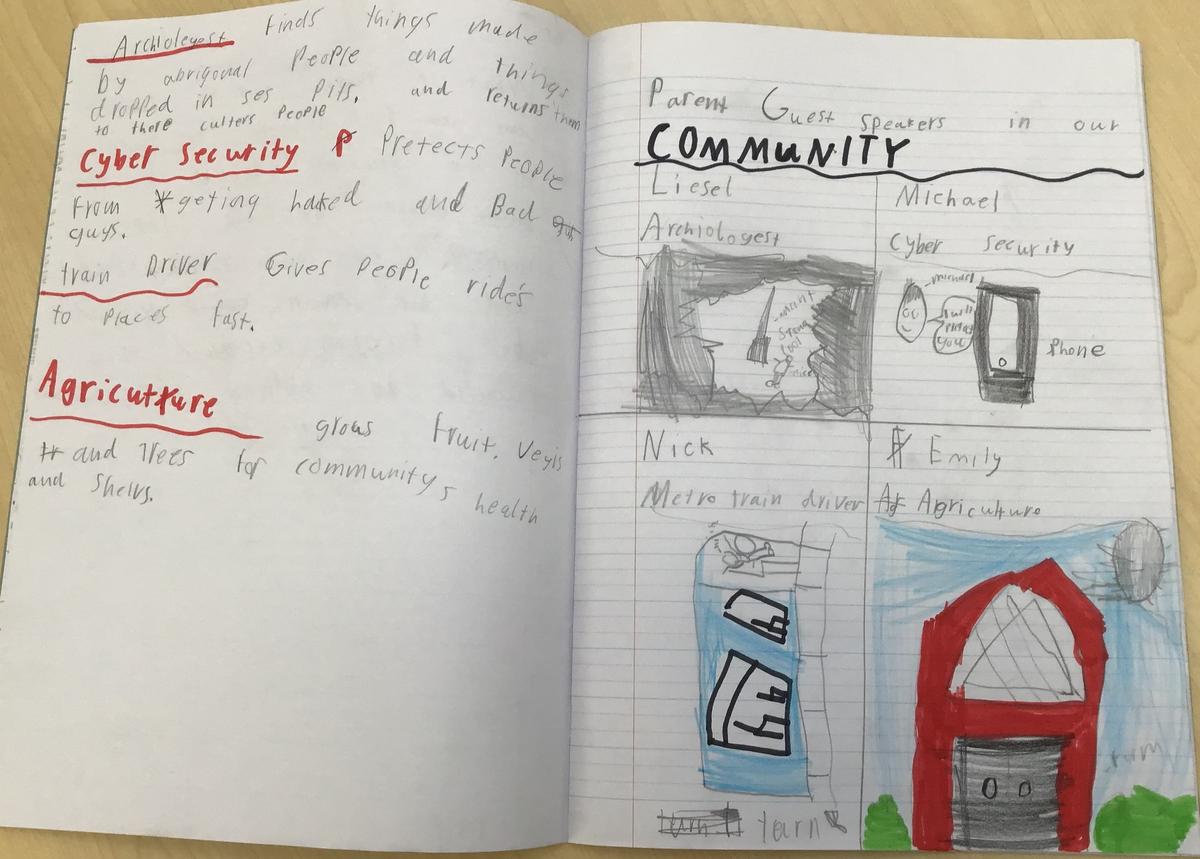 Archiologest finds things made
by abrigonal People and things
dropped in ses Pits. and returns them
to there culters People
Cyber Security Pretects People
from geting haked and Bad
guys.
train Driver Gives People ride's
to Places fast.
Agricutture grous fruit, Vegis
and Trees for communitys health
and Shelvs.
Parent Guest Speakers in our
COMMUNITY
Liesel
Archiologest
Michael
Cyber Security
michael
I will
Pretect
you
Phone
Nick
Metro train driver
Emily
Agriculture
farm
turn